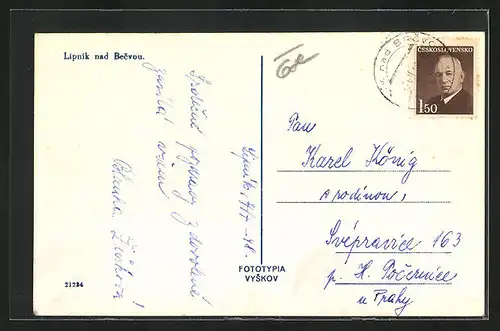 Lipník nad Bečvou.
60e
nad BEČVO
ČESKOSLOVENSKO
1.50
Pan
Karel König
a rodinou,
Svépravice 163
p. H. Počernice
u Prahy
Srdečné pozdravy z dovolené
zasílá všem
Blanka
Lipník, 7/7 - 48.
FOTOTYPIA
VYŠKOV
21234